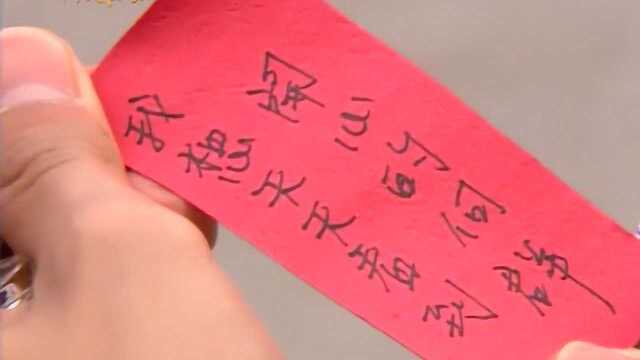 我想天天看到
開心的何群